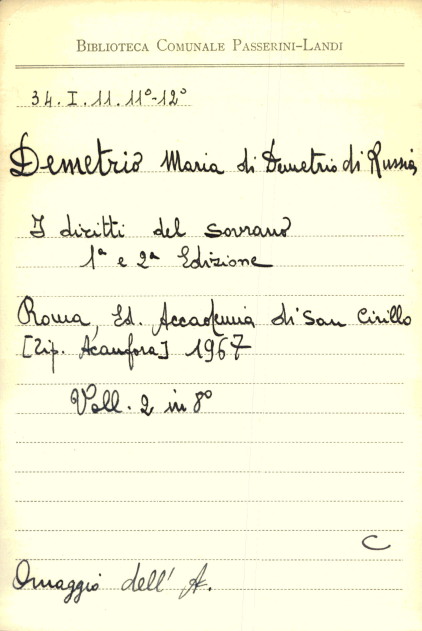 BIBLIOTECA COMUNALE PASSERINI-LANDI
34. I. 11. 11°-12°
Demetrio Maria di Demetrio di Russia
I diritti del sovrano
1ª e 2ª Edizione
Roma, Ed. Accademia di San Cirillo
[Tip. Acanfora] 1967
Voll. 2 in 8°
C
Omaggio dell' A.